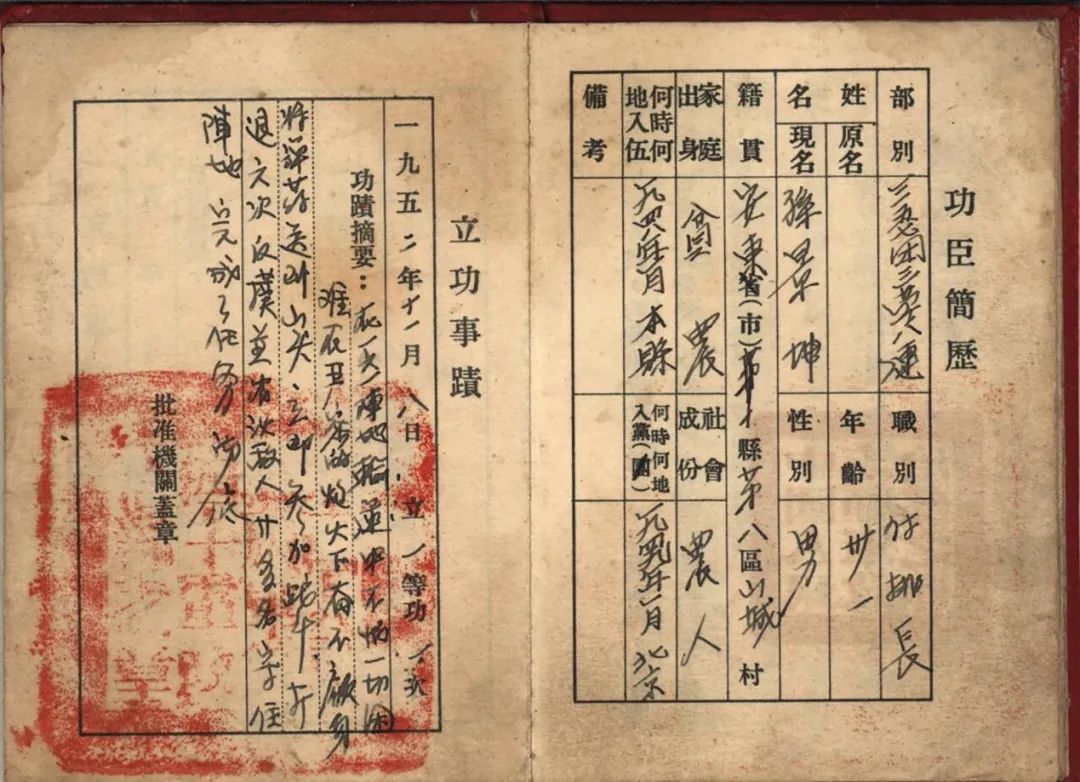 功臣簡歷
部別 三营八連 職別 付排長
姓名 原名
現名 孫景坤 年齡 卅一
性別 男
籍貫 安東省(市)第 縣第八區山城村
家庭出身 農 社會成份 農人
何時何地入伍 一九四八年一月 本縣 何時何地入黨(團) 一九四九年一月 北京
備考
立功事蹟
一九五二年十一月八日立一等功一次
功蹟摘要：在一六一陣地輸运中不怕一切困
难在 的炮火下奋不顧身
将弹药送到山头立即参加战斗打
退六次反撲並 敌人廿多名守住
陣地完成了任务
批准機關蓋章